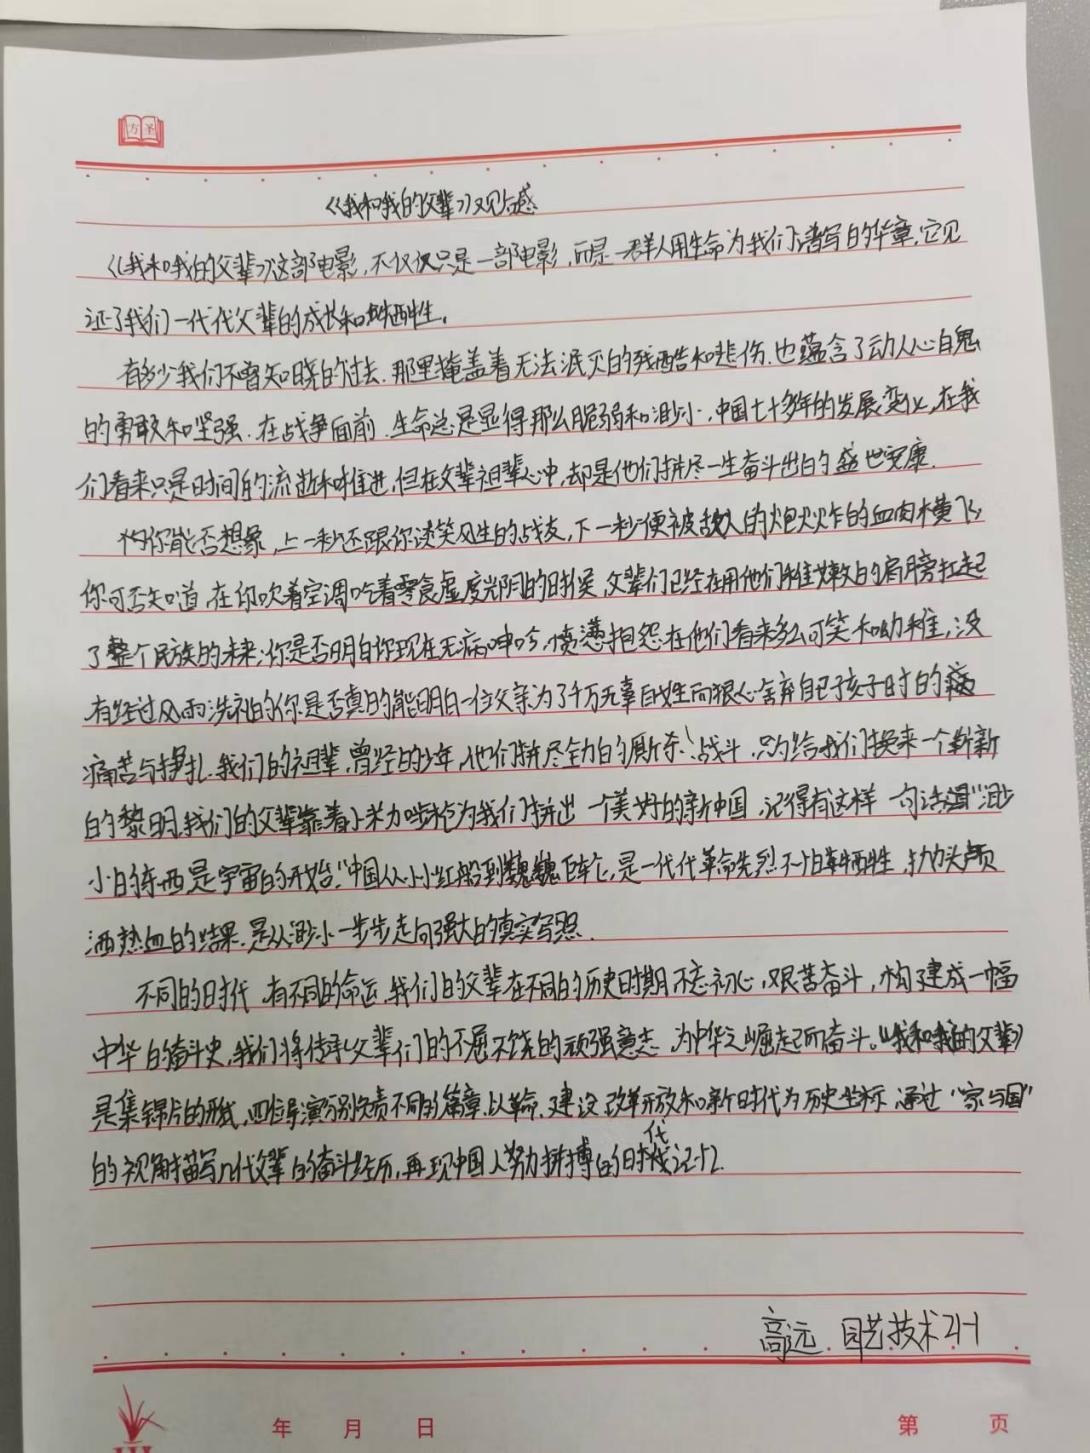 方圣
《我和我的父辈》观后感
《我和我的父辈》这部电影,不仅仅只是一部电影,而是一群人用生命为我们谱写的华章,它见
证了我们一代代父辈的成长和牺牲。
有多少我们不曾知晓的过去,那里掩盖着无法泯灭的残酷和悲伤,也蕴含了动人心魄
的勇敢和坚强.在战争面前,生命总是显得那么脆弱和渺小,中国七十多年的发展变化,在我
们看来只是时间的流逝和推进,但在父辈祖辈心中,却是他们拼尽一生奋斗出的盛世安康.
你能否想象,上一秒还跟你谈笑风生的战友,下一秒便被敌人的炮火炸的血肉横飞
你可否知道,在你吹着空调吃着零食虚度光阴的时候,父辈们已经在用他们稚嫩的肩膀扛起
了整个民族的未来;你是否明白你现在无病呻吟,愤懑抱怨在他们看来多么可笑和幼稚,没
有经过风雨洗礼的你是否真的能明白一位父亲为了千万无辜百姓而狠心舍弃自己孩子时的
痛苦与挣扎.我们的祖辈,曾经的少年,他们拼尽全力的厮杀、战斗,只为给我们换来一个崭新
的黎明,我们的父辈靠着小米加步枪为我们拼出一个美好的新中国,记得有这样一句话:"渺
小的东西是宇宙的开始."中国从小小红船到巍巍巨轮,是一代代革命先烈不怕牺牲,抛头颅
洒热血的结果,是从渺小一步步走向强大的真实写照.
不同的时代,有不同的命运,我们的父辈在不同的历史时期不忘初心,艰苦奋斗,构建成一幅
中华的奋斗史,我们将传承父辈们的不屈不饶的顽强意志,为中华之崛起而奋斗。《我和我的父辈》
是集锦片的形式,四位导演分别负责不同的篇章,以革命,建设,改革开放和新时代为历史坐标,通过"家与国"
的视角描写几代父辈的奋斗经历,再现中国人努力拼搏的时代记忆.
高远 园艺技术21-1
年 月 日 第 页